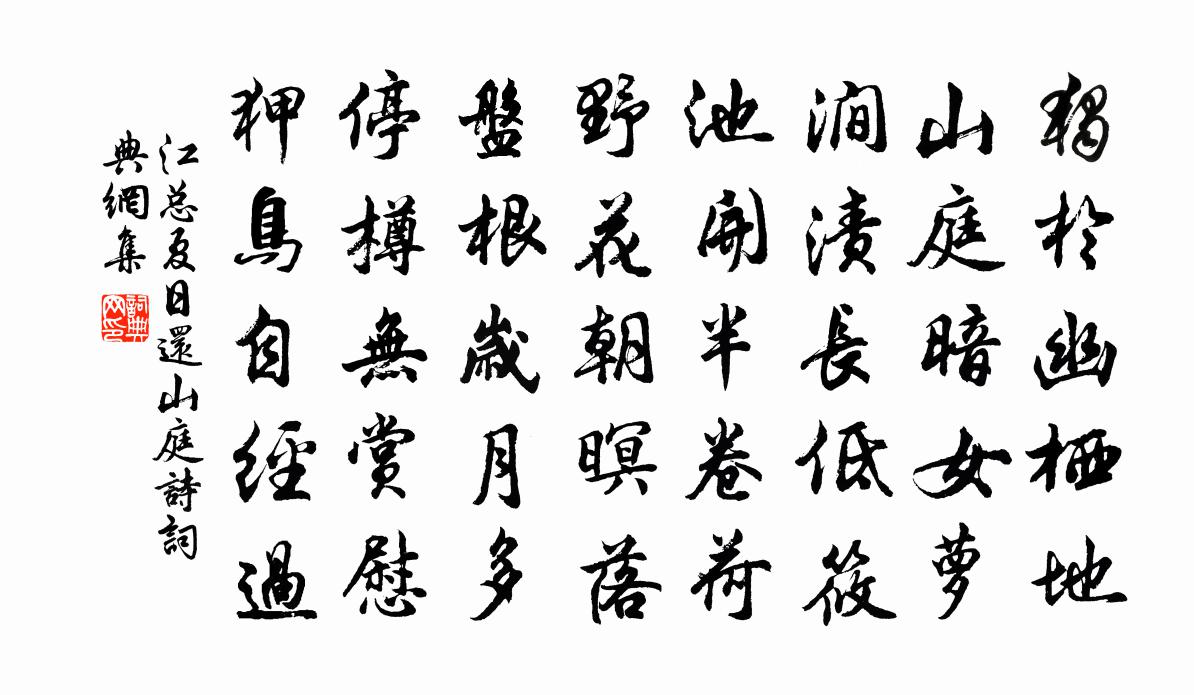 獨於幽栖地
山庭暗女萝
澗漬長低筱
池開半卷荷
野花朝暝落
盤根歲月多
停樽無賞慰
狎鳥自經過
江总夏日還山庭詩詞
典網集
詞典
网印